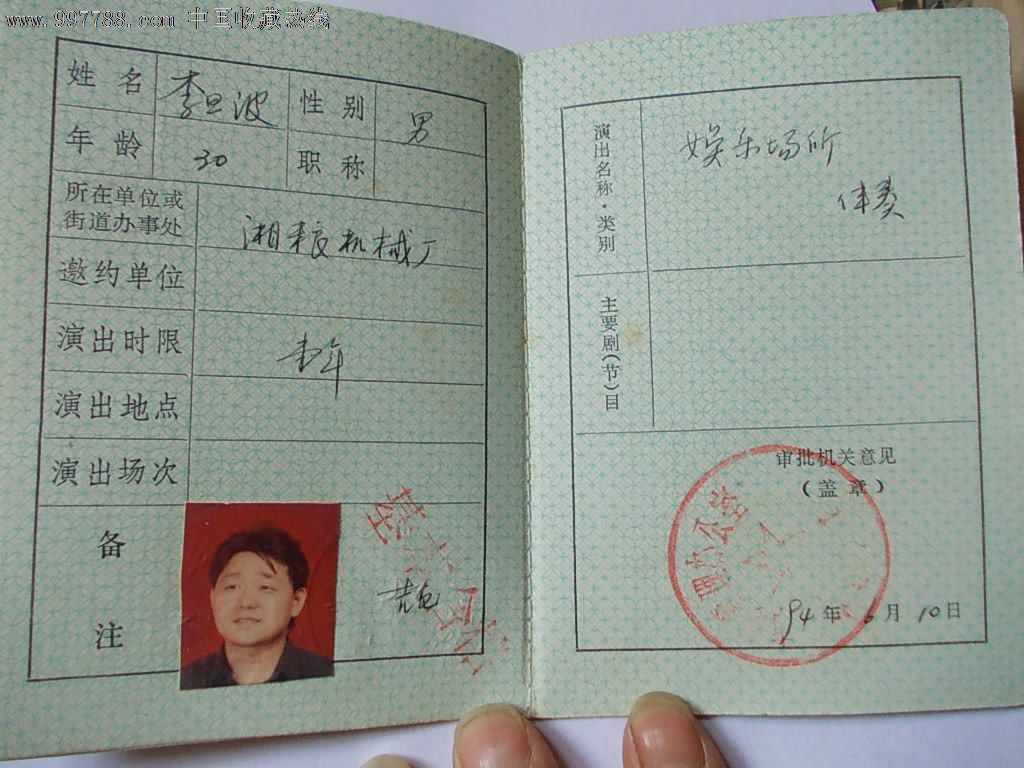 www.997788.com 中国收藏热线
姓名 李旦波 性别 男
年龄 30 职称
所在单位或
街道办事处 湘来机械厂
邀约单位
演出时限 壹年
演出地点
演出场次
备
注
演出名称·类别 娱乐场所
伴奏
主要剧(节)目
审批机关意见
(盖章)
94年6月10日